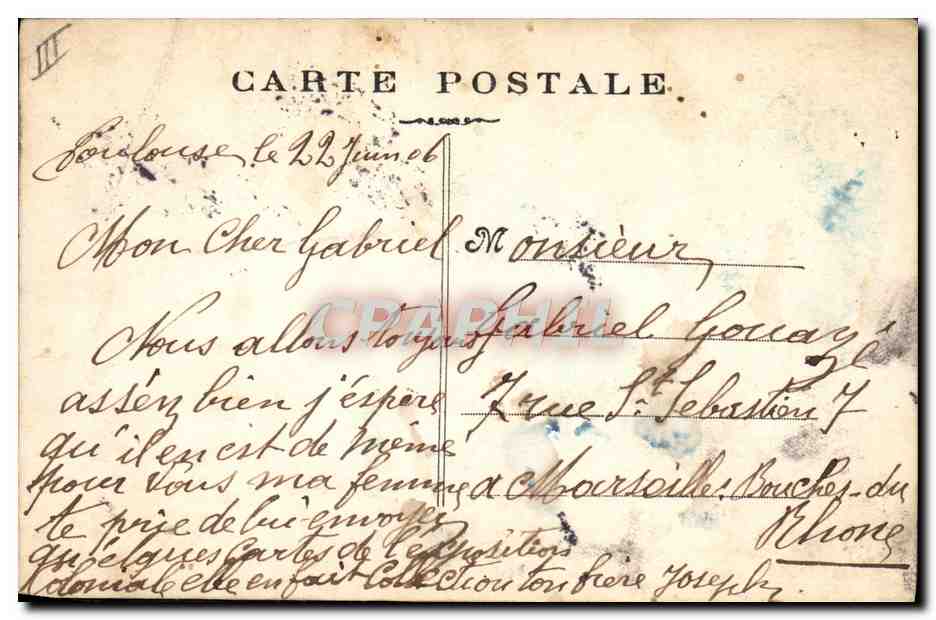 III
CARTE POSTALE
Toulouse le 22 Juin 06
Mon Cher Gabriel
Nous allons toujours
assérz bien j'éspére
qu'il en est de même
pour vous ma femme
te prie de lui envoyer
quélques Cartes de l'éxposition
Coloniale elle en fait Collection ton frère Joseph
Monsieur
Gabriel Gouazé
7 rue St Sebastien 7
a Marseille Bouches-du
Rhone
CPAPHIL